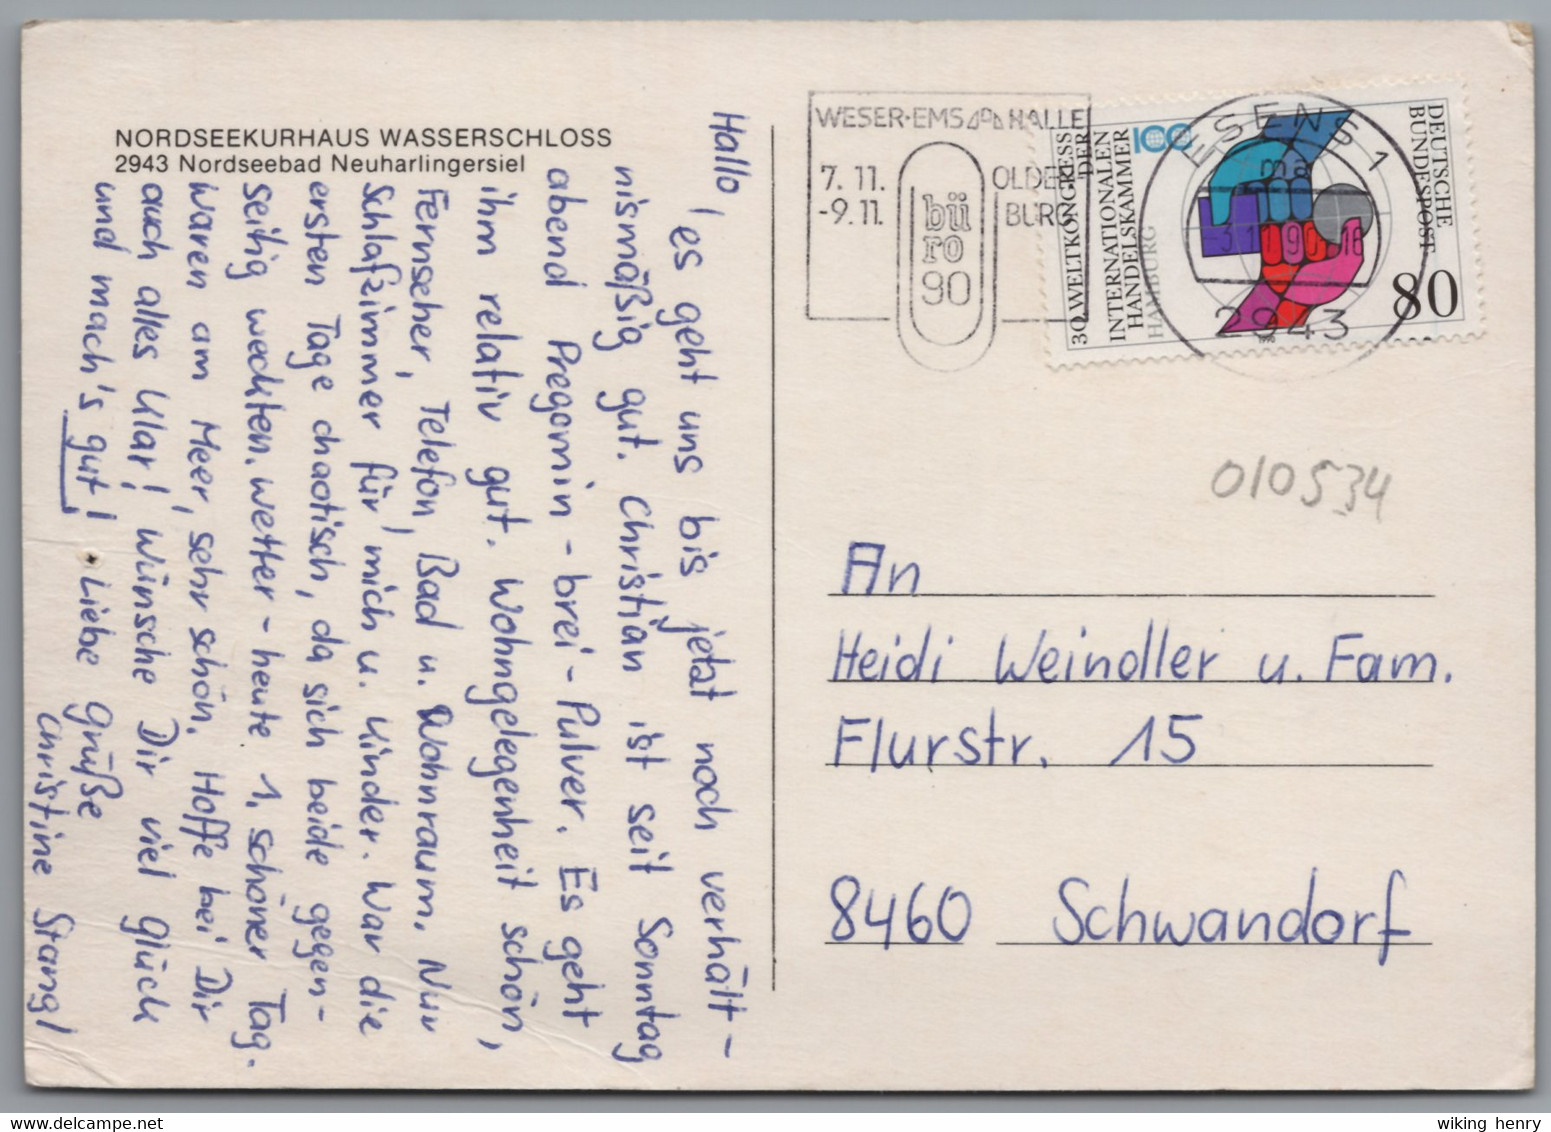 NORDSEEKURHAUS WASSERSCHLOSS
2943 Nordseebad Neuharlingersiel
Hallo,
es geht uns bis jetzt noch verhält-
nismäßig gut. Christian ist seit Sonntag
abend Pregomin-brei-Pulver. Es geht
ihm relativ gut. Wohngelegenheit schön,
Fernseher, Telefon, Bad u. Wohnraum. Nur
Schlafzimmer für mich u. Kinder. War die
ersten Tage chaotisch, da sich beide gegen-
seitig weckten. Wetter - heute 1. schöner Tag.
Waren am Meer, sehr schön. Hoffe bei Dir
auch alles klar! Wünsche Dir viel Glück
und mach's gut! Liebe Grüße
Christine Stangl
WESER-EMS HALLE
OLDENBURG
7. 11.
-9. 11.
büro
90
ESENS 1
ma
31
90
16
2943
DEUTSCHE
BUNDESPOST
80
100
30. WELTKONGRESS
DER
INTERNATIONALEN
HANDELSKAMMER
HAMBURG
010534
An
Heidi Weindler u. Fam.
Flurstr. 15
8460 Schwandorf
wiking henry